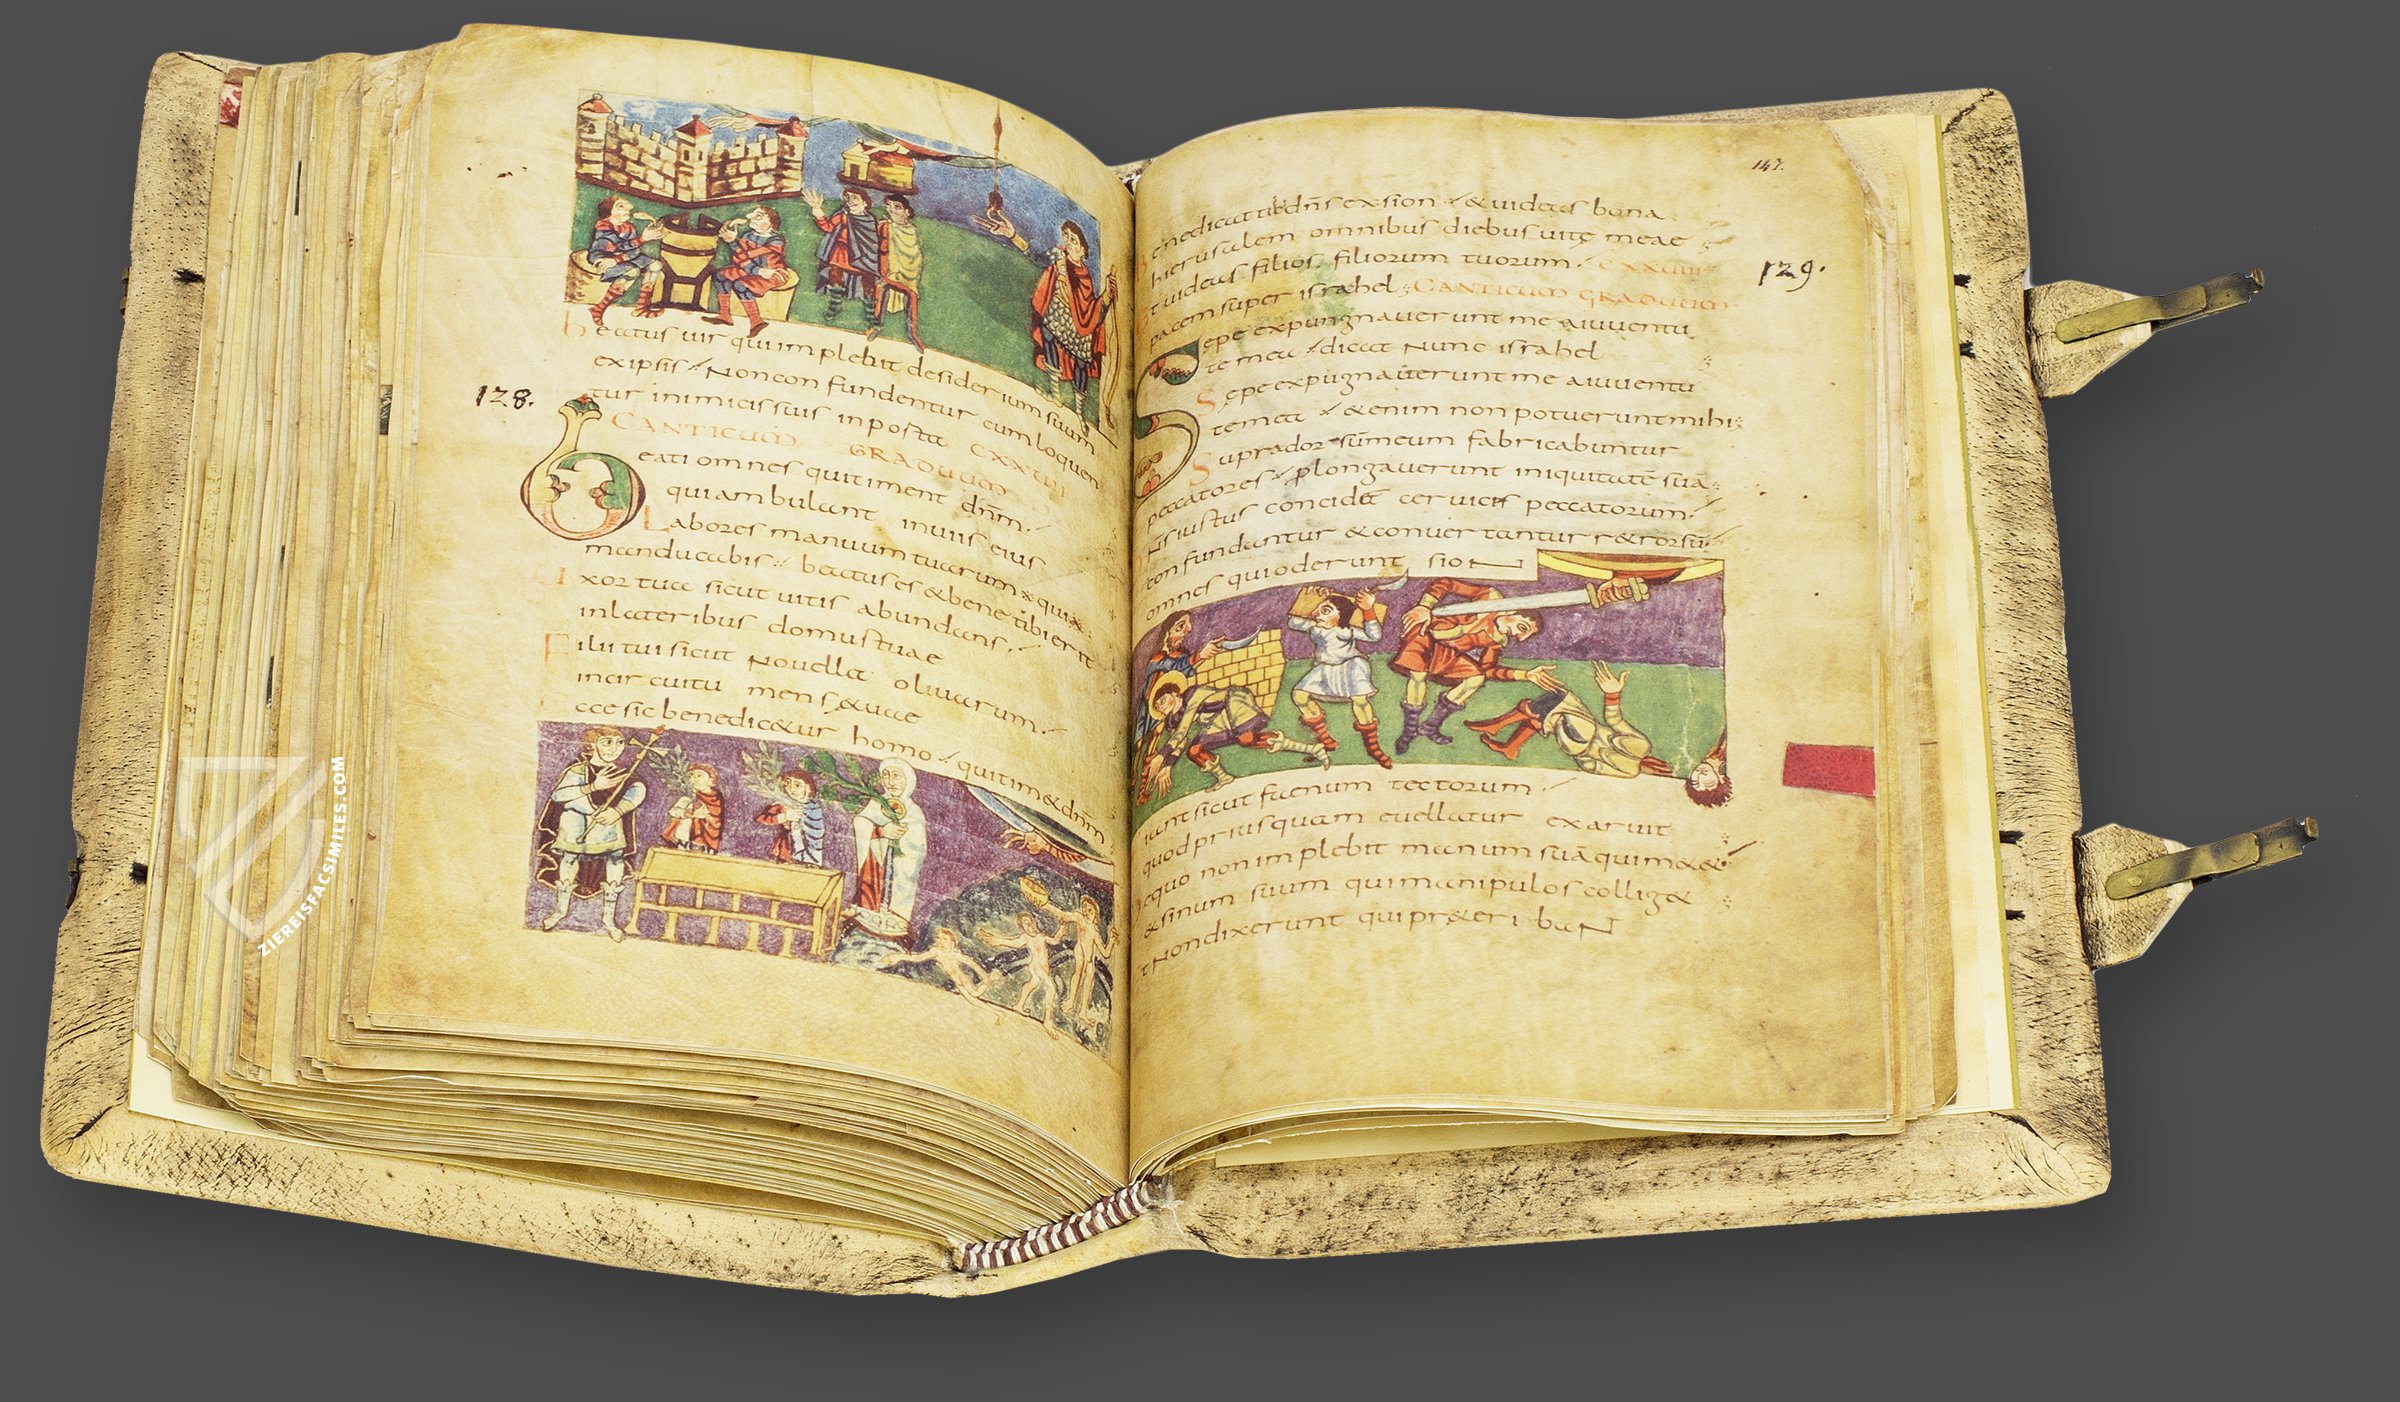 beatus uir qui implebit desiderium suum
ex ipsis / Non confundentur cum loquen
tur inimicis suis in porta CXXVII
128.
CANTICUM GRADUUM
beati omnes qui timent dnm
qui ambulant in uiis eius
Labores manuum tuarum quia
manducabis beatus es & bene tibi erit
Uxor tua sicut uitis abundans
in lateribus domus tuae
Filii tui sicut nouella oliuarum
in circuitu mensę tuae
Ecce sic benedic&ur homo qui tim& dnm
147.
benedicat tibi dns ex sion & uideas bona
hierusalem omnibus diebus uitę meae
&uideas filios filiorum tuorum CXXVIII
pacem super israhel CANTICUM GRADUUM
129.
Sępe expungnauerunt me a iuuentu
te mea dicat nunc israhel
Sępe expugnauerunt me a iuuentu
te mea & enim non potuerunt mihi
Supra dorsum meum fabricabuntur
peccatores prolongauerunt iniquitatē suā
Dns iustus concidet ceruices peccatorum
confundantur & conuertantur r&rorsū
omnes qui oderunt sion
Fiant sicut faenum tectorum
quod priusquam euellatur exaruit
de quo non implebit manum suā qui m&&
& sinum suum qui manipulos collig&
Et non dixerunt qui pr&eriban
ZIEREISFACSIMILES.COM